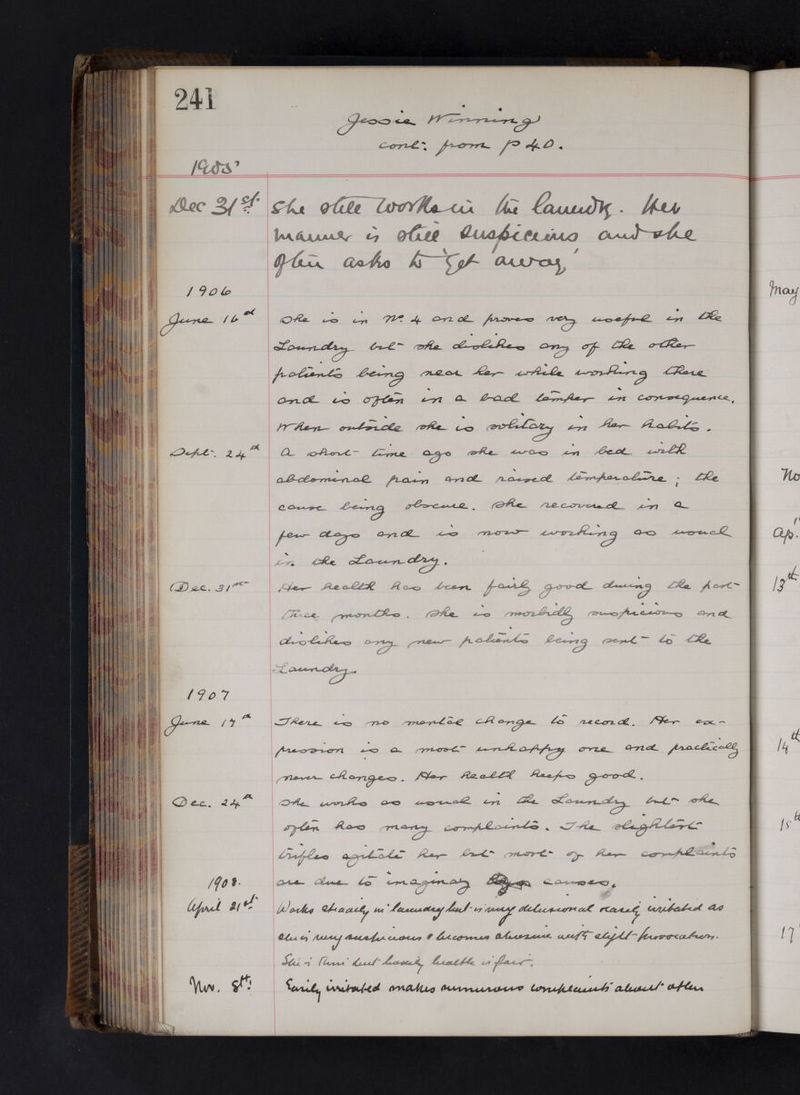 241
Jessie Winning
cont: from p 40.
1905
Dec 31st. She still works in the laundry. Her
manner is still suspicious and she
often asks to 'get away'
1906
June 16th She is in No. 4 and proves very useful in the
Laundry but she dislikes any of the other
patients being near her while working there
and is often in a bad temper in consequence.
When outside she is solitary in her habits.
Sept. 24th A short time ago she was in bed with
abdominal pain and raised temperature; the
cause being obscure. She recovered in a
few days and is now working as usual
in the Laundry.
Dec. 31st Her health has been fairly good during the past
three months. She is morbidly suspicious and
dislikes any new patients being sent to the
Laundry.
1907
June 17th There is no mental change to record. Her ex-
pression is a most unhappy one and practically
never changes. Her health keeps good.
Dec. 24th She works as usual in the Laundry but she
often has many complaints. The slightest
trifles agitate her but most of her complaints
1908. are due to imaginary causes.
April 21st Works steadily in laundry but is very delusional easily irritated as
she is very suspicious & becomes abusive with slight provocation.
She is thin but bodily health is fair.
Nov. 8th: Easily irritated makes numerous complaints about other
May
No
Ap.
13th
14th
15th
17